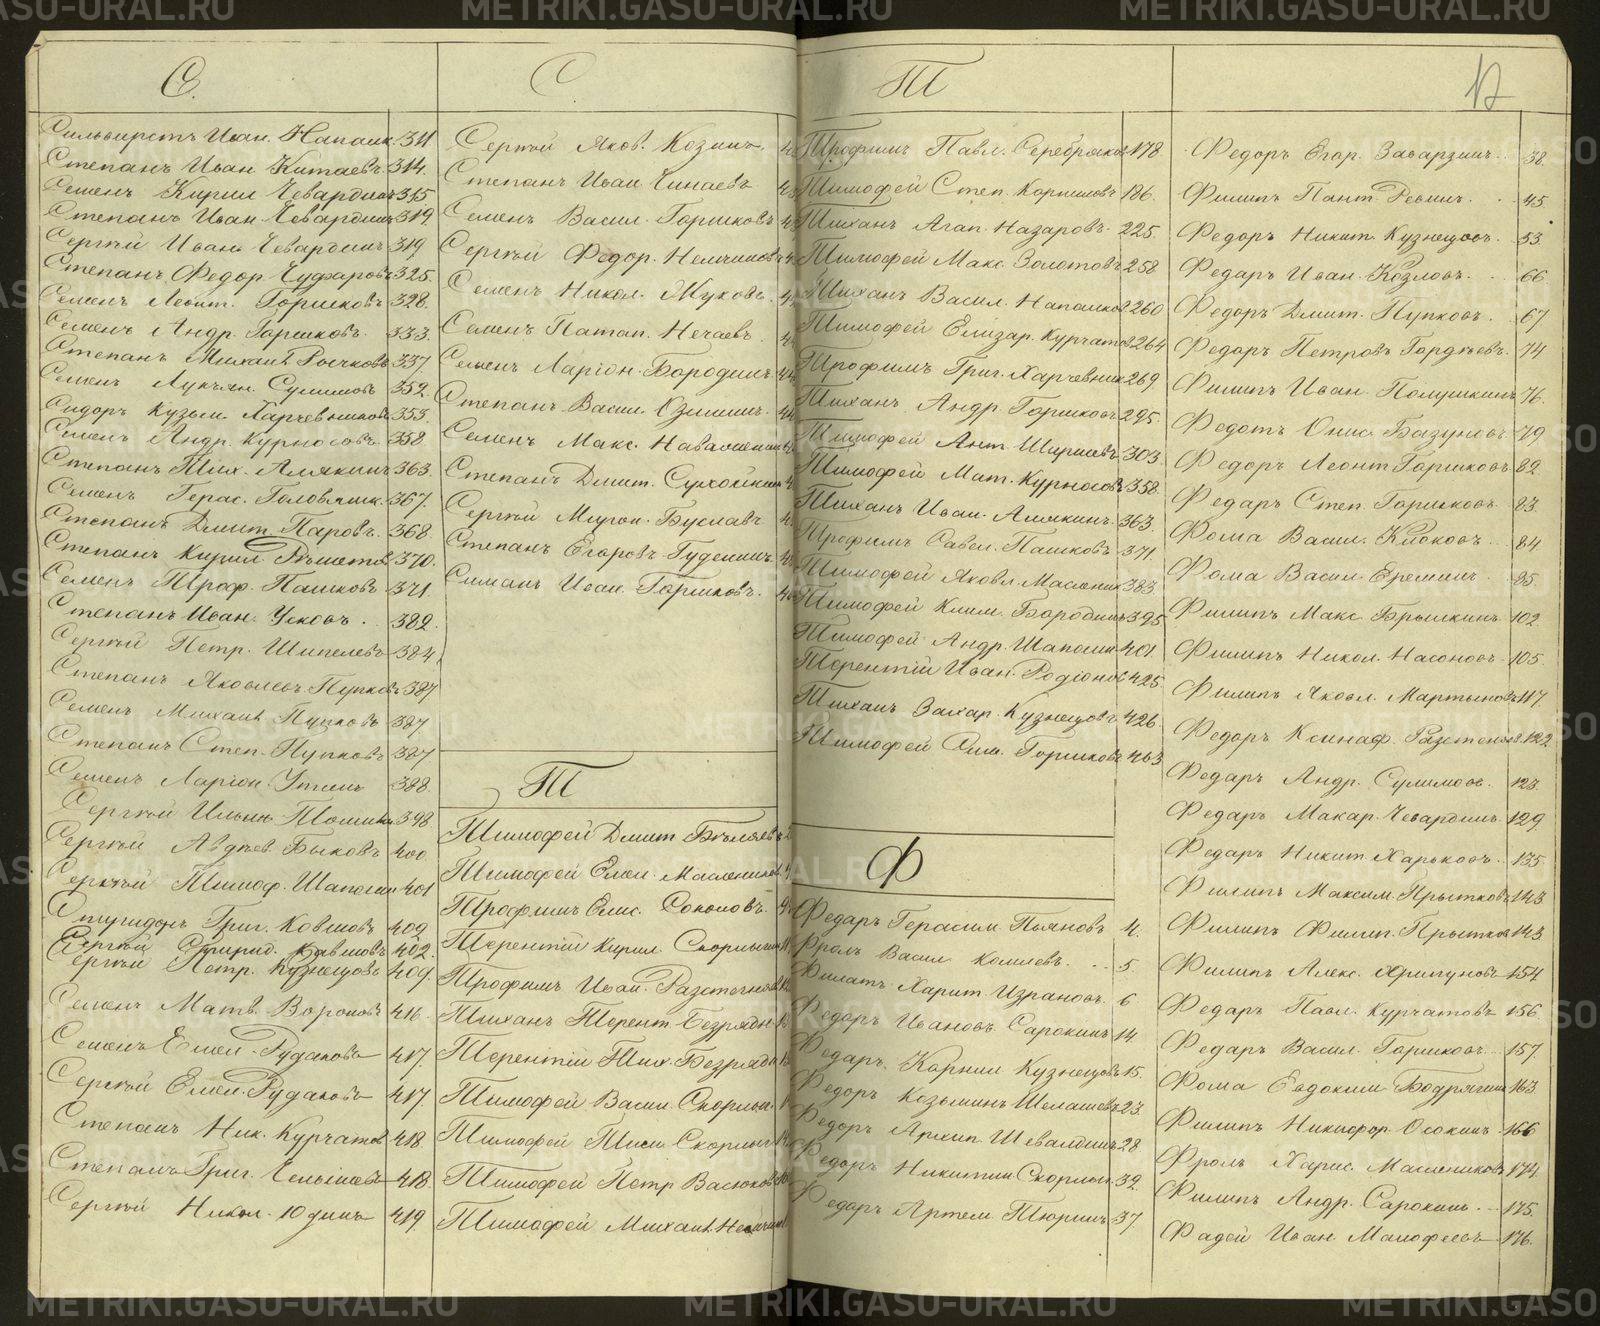 С.
Сильверстъ Иван. Напалк. 311
Степанъ Иван Китаевъ 314.
Семенъ Кирил Чевардинъ 315
Степанъ Иван Чевардинъ 319.
Сергѣй Иванъ Чевардинъ 319
Степанъ Федор. Чуфаровъ 325.
Семенъ Леонт. Горшковъ 328.
Семенъ Андр. Горшковъ. 333.
Степанъ Михаил. Рычковъ 337.
Семенъ Лукъян. Сулимовъ 352.
Сидоръ Кузьм. Харчевниковъ 353.
Семенъ Андр. Курносовъ. 358.
Степанъ Тих. Алякинъ 363.
Семенъ Герас. Головачик. 367.
Степанъ Дмит. Паровъ. 368.
Степанъ Кирил Рѣшетов 370.
Семенъ Троф. Пашковъ 371.
Степанъ Иван. Усковъ. 382.
Сергѣй Петр. Шипелевъ 384
Степанъ Яковлевъ Пупковъ 387
Семенъ Михаил. Пупковъ 387
Степанъ Степ. Пупковъ 387
Семенъ Ларіон. Утинъ 388.
Сергѣй Ильин. 398
Сергѣй Авдѣев. Быковъ 400.
Сергѣй Тимоф. Шапошн 401
Григ. Ковшовъ 409
Сергѣй 402.
Сергѣй Петр. Кузнецовъ 409.
Семенъ Матв. Вороновъ 416.
Семенъ Емел. Рудаковъ 417.
Сергѣй Емел. Рудаковъ 417.
Степанъ Ник. Курчатов 418.
Степанъ Григ. 418.
Сергѣй Никол. Юдинъ 419
С
Сергѣй Яков. Козинъ,
Степанъ Иван Чинаевъ
Семенъ Васил. Горшковъ
Сергѣй Федор. Немчиновъ
Семенъ Никол. Жуковъ.
Семенъ Патап. Нечаевъ.
Семенъ Ларіон. Бородинъ
Степанъ Васил. Озлишинъ.
Семенъ Макс.
Степанъ Дмит.
Сергѣй Мирон. Буславъ
Степанъ Егоровъ Гуделинъ.
Симанъ Иван. Горшковъ.
Т
Тимофей Дмит Бѣляевъ
Тимофей Емел. Маслеников
Трофимъ Елис. Соколовъ.
Терентій Кирил.
Трофимъ Иван.
Тиханъ Терент. Безрядн
Терентій Тих. Безрядн
Тимофей Васил.
Тимофей Тим.
Тимофей Петр Васюков
Тимофей Михаил.
Т
Трофимъ Павл. Серебряков 178
Тимофей Степ. Корниловъ 186.
Тиханъ Агап. Назаровъ. 225.
Тимофей Макс. Золотовъ 258
Тиханъ Васил. Напалков 260
Тимофей Елизар. Курчатов 264
Трофимъ Григ. Харчевник 269.
Тиханъ Андр Горшковъ 295.
Тимофей Ант. Ширяевъ 303.
Тимофей Мат. Курносовъ 358.
Тиханъ Иван. Алякинъ. 363.
Трофимъ Савел. Пашковъ 371.
Тимофей Яковл. Масленик 383.
Тимофей Клим. Бородинъ 395
Тимофей Андр. Шапошн 401.
Терентій Иван. Родіонов 425.
Тиханъ Захар. Кузнецовъ 426.
Тимофей Горшковъ 463
Ф
Федаръ Герасим Пьяновъ 4.
Фролъ Васил 5.
Филатъ Харит. 6
Федоръ Ивановъ Сарокинъ 14.
Федаръ. Карнил Кузнецовъ 15.
Федоръ Козьминъ Шелашевъ 23.
Федоръ Архип. Шевалдинъ 28
Федоръ Никитин 32.
Федаръ Артем. Тюринъ 37
12
Федоръ Егор. Заварзинъ. 38.
Филипъ Пант. Ревинъ. 45.
Федоръ Никит. Кузнецовъ. 53.
Федаръ Иван. Козловъ. 66.
Федоръ Дмит. Пупковъ. 67
Федоръ Петровъ Гордѣевъ. 74
Филипъ Иван. Полушкинъ 76.
Федотъ Онис. Базуновъ 79.
Федоръ Леонт Горшковъ 82.
Федаръ Степ Горшковъ. 83.
Фома Васил. Клюковъ. 84
Фома Васил. Ереминъ. 85.
Филипъ Макс Брылкинъ. 102.
Филипъ Никол. Насоновъ. 105.
Филипъ Яковл. Мартыновъ 117.
Федоръ 122
Федаръ Андр. Сулимовъ. 123.
Федаръ Макар. Чевардинъ. 129
Федаръ Никит. Харьковъ. 135.
Филипъ Максим. Прытковъ 143
Филипъ Филип. Прытков 143
Филипъ Алекс. Хрипуновъ 154
Федаръ Павл. Курчатовъ 156.
Федаръ Васил. Горшковъ. 157.
Фома Евдоким Бодрягин 163.
Филипъ Никифор. Осокинъ. 166
Фролъ Харис. Маслениковъ 174
Филипъ Андр. Сарокинъ. 175.
Фадей Иван. Малофеевъ 176.
METRIKI.GASU-URAL.RU